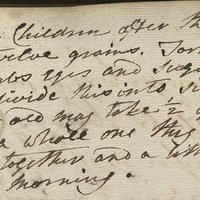 Children after th
twelve grains. Tor
bs Eyes and suga
divide this into si
old may take ½ o
a whole one thry
together and a litt
morning.